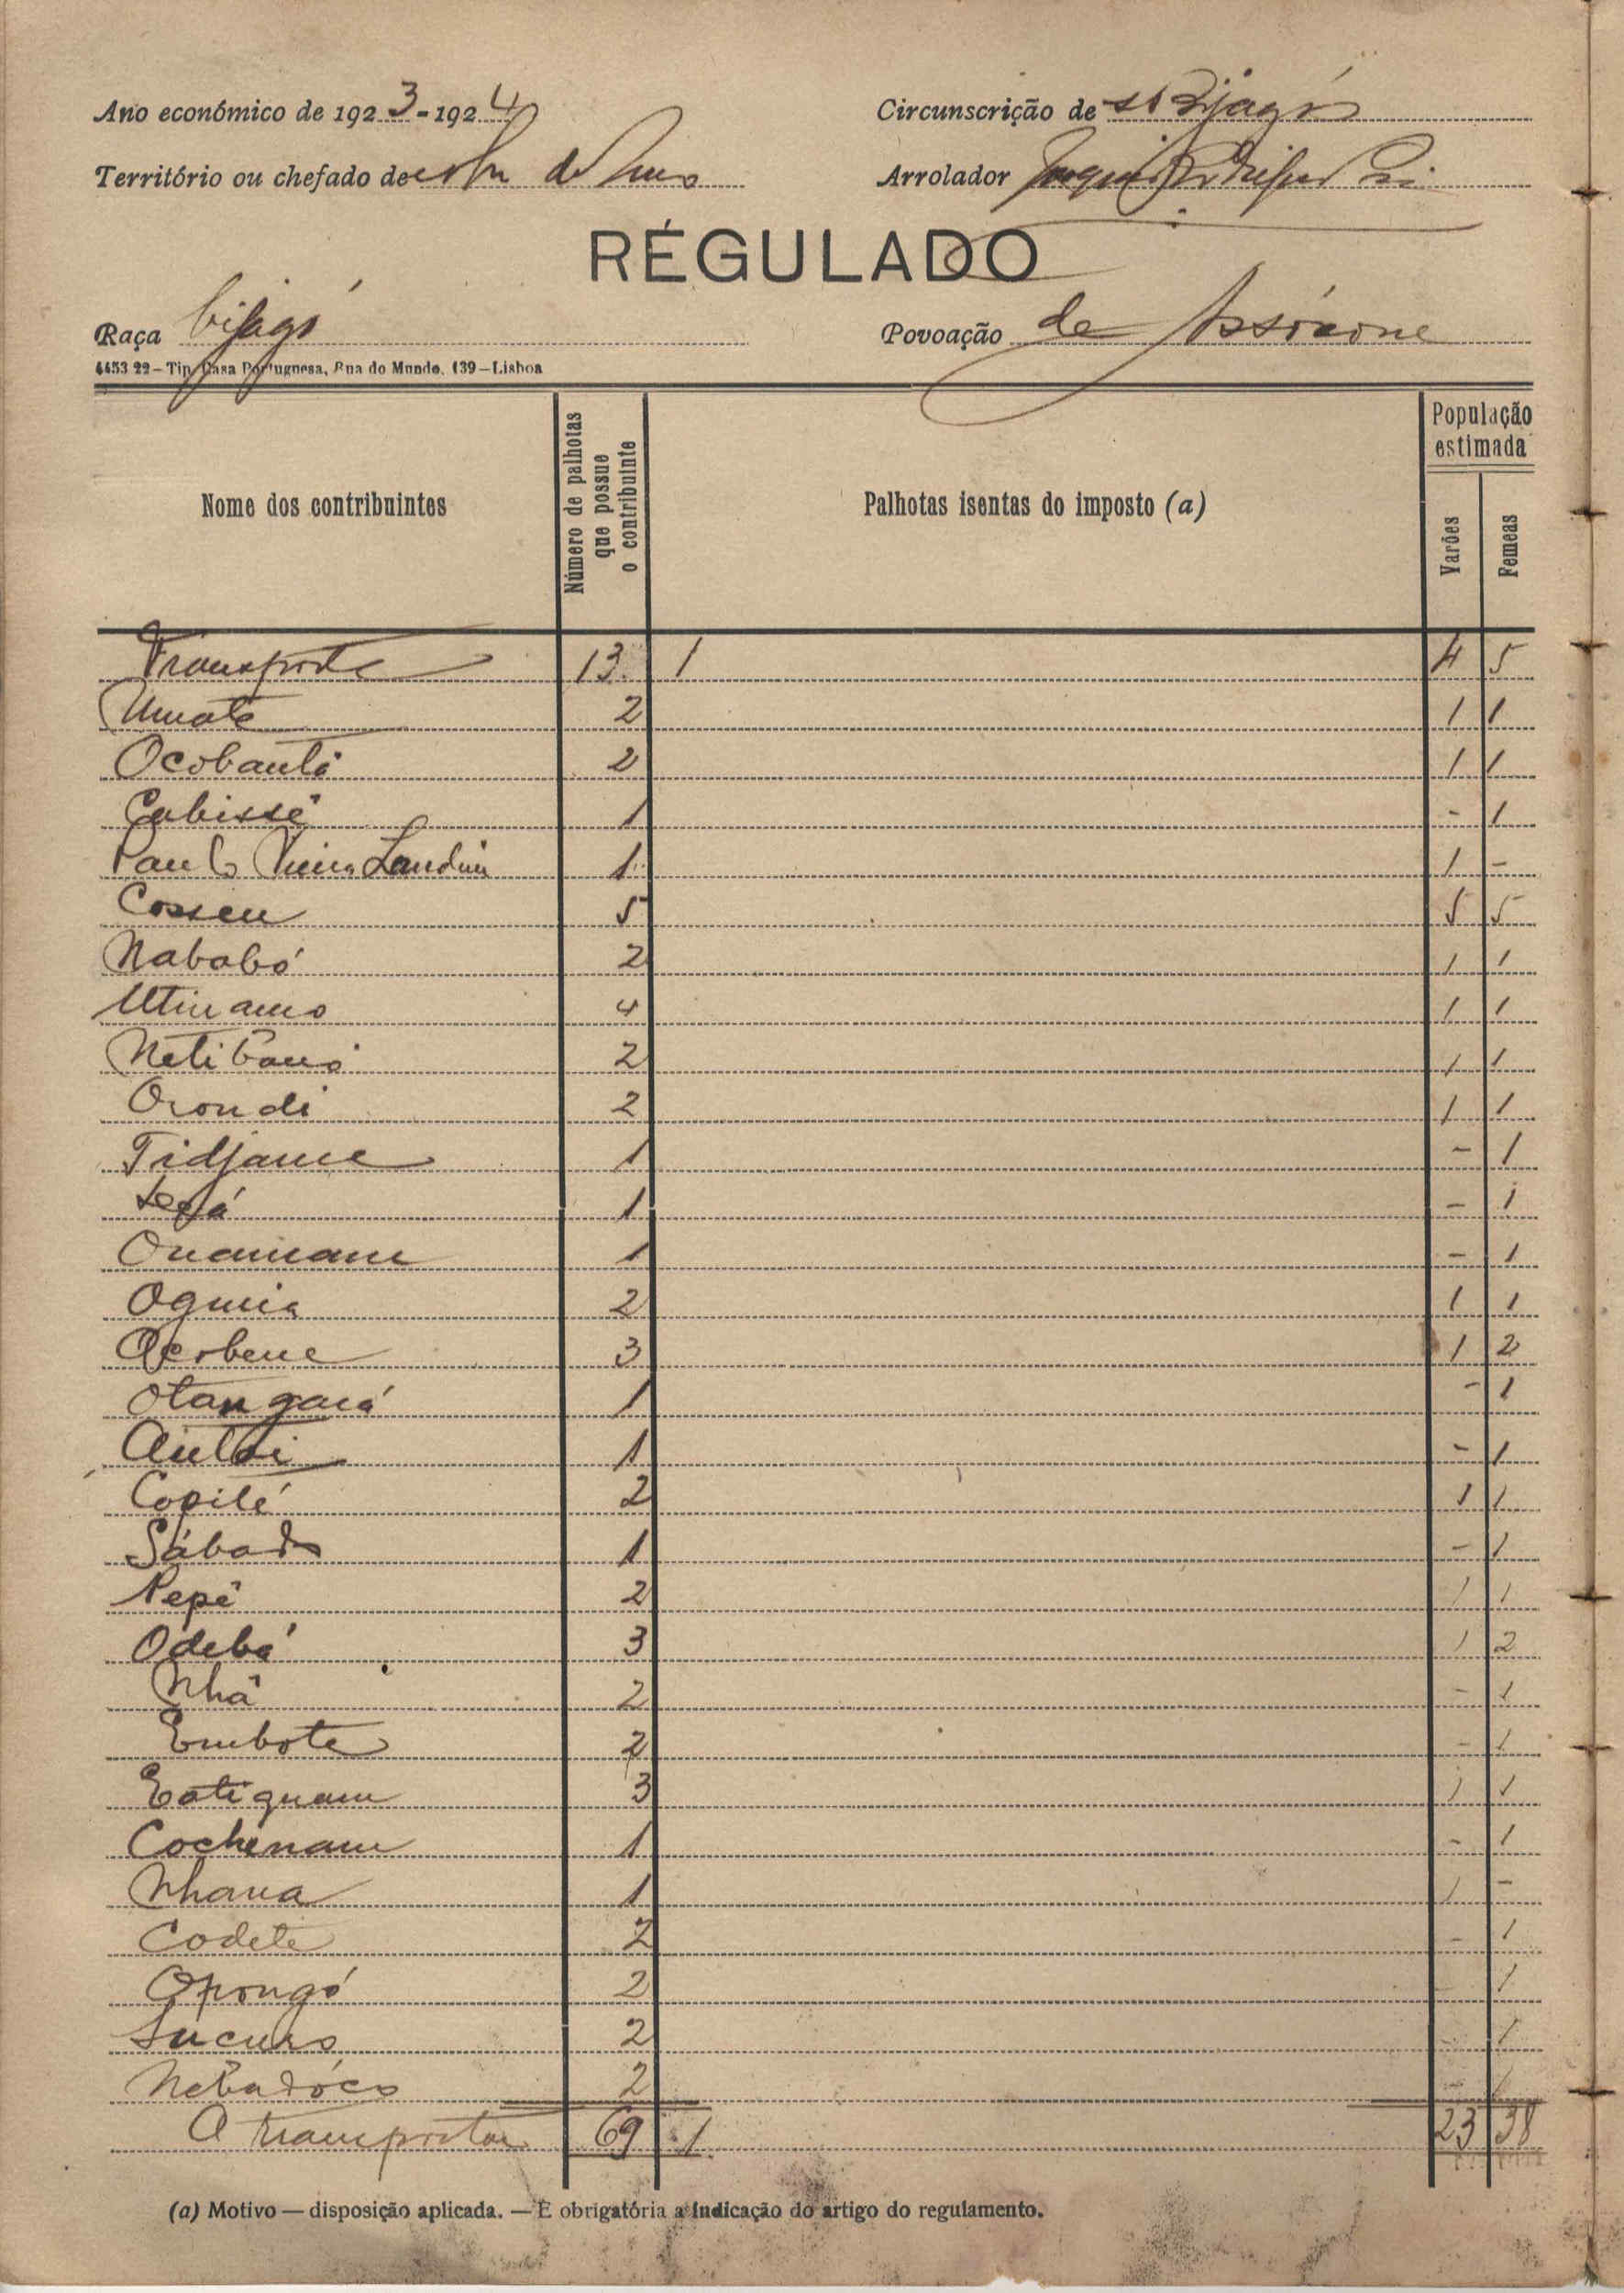 Ano económico de 1923-1924 Circunscrição de Bijagós
Território ou chefado de Arrolador
RÉGULADO
Raça bijagó Povoação de
4453 22 – Tip. Casa Portuguesa, Rua do Mundo, 139 – Lisboa
Nome dos contribuintes Número de palhotas que possue o contribuinte Palhotas isentas do imposto (a) População estimada Varões Femeas
Transporte 13 1 4 5
Umate 2 1 1
Ocobantó 2 1 1
Cabissê 1 - 1
Paulo Vieira Landim 1 1 -
Cosseu 5 5 5
Nababó 2 1 1
Utinamo 4 1 1
2 1 1
Orondi 2 1 1
Tidjame 1 - 1
1 - 1
1 - 1
2 1 1
3 1 2
1 - 1
1 - 1
Copilé 2 1 1
Sábado 1 - 1
Pepê 2 1 1
Odebá 3 1 2
Nhâ 2 - 1
Embote 2 - 1
3 1 1
Cochenam 1 - 1
Nhana 1 1 -
Codete 2 - 1
Opongó 2 1
Sucuro 2 - 1
2 - 1
A transportar 69 1 23 38
(a) Motivo — disposição aplicada. — É obrigatória a indicação do artigo do regulamento.